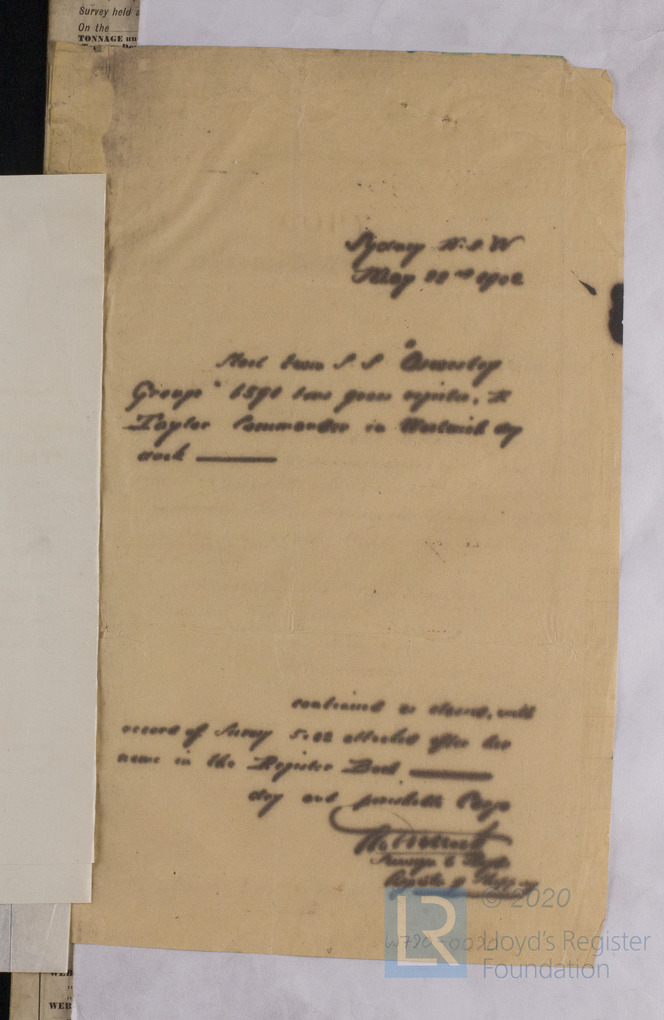 Survey held
On the
TONNAGE
Sydney N.S.W
May 22nd 1902
Steel Screw S.S. "
Grange" 6591 tons gross register, R
Taylor Commander in Woolwich dry
dock
continued as classed, with
record of Survey 5.02 attached after her
name in the Register Book
dry and perishable Cargo
Surveyor to Lloyds
Register of Shipping
W790-00
© 2020
LR
Lloyd's Register
Foundation
WEB
WEB